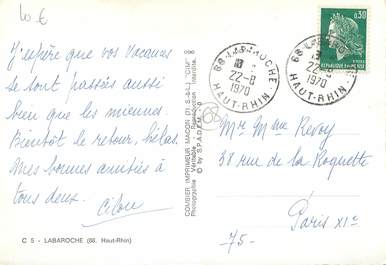 10 €
J'espère que vos Vacances
se sont passées aussi
bien que les miennes.
Bientôt le retour, hélas.
Mes bonnes amitiés à
tous deux.
C 5 - LABAROCHE (68. Haut-Rhin)
COMBIER IMPRIMEUR MACON (71 S.-&-L.) "CIM"
Photographie Véritable - Reproduction Interdite.
© by S.P.A.D.E.M.
68 LABAROCHE
22-8
1970
HAUT-RHIN
68 LABAROCHE
22-8
1970
HAUT-RHIN
0,30
REPUBLIQUE FRANÇAISE
Mr Mme Revoy
38 rue de la Roquette
Paris XIe
75-